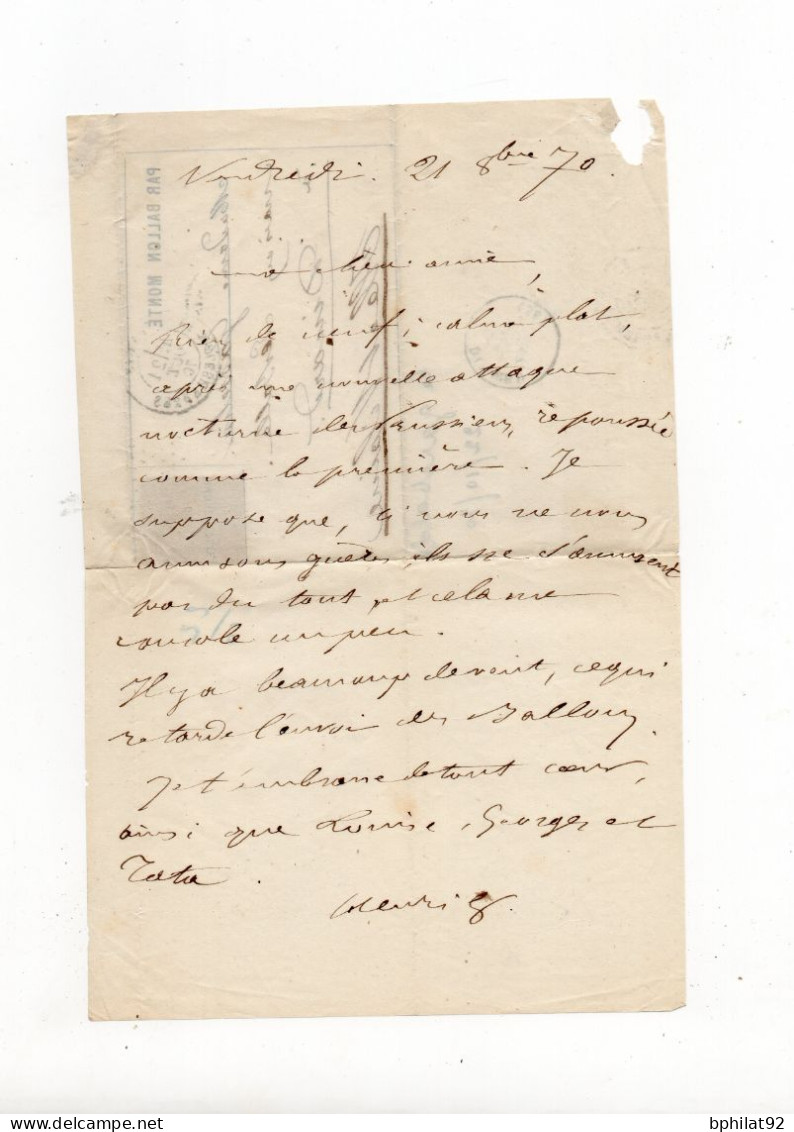 Vendredi. 21 8bre 70.
ma chère amie,
Rien de neuf; calme plat,
après une nouvelle attaque
nocturne des Prussiens, repoussée
comme la première. Je
suppose que, si nous ne nous
amusons guères, ils ne s'amusent
pas du tout, et cela me
console un peu.
Il y a beaucoup de vent, ce qui
retarde l'envoi des Ballons.
Je t'embrasse de tout cœur,
ainsi que Louise, Georges et
Tata.
Henri
PAR BALLON MONTÉ
delcampe.net
bphilat92